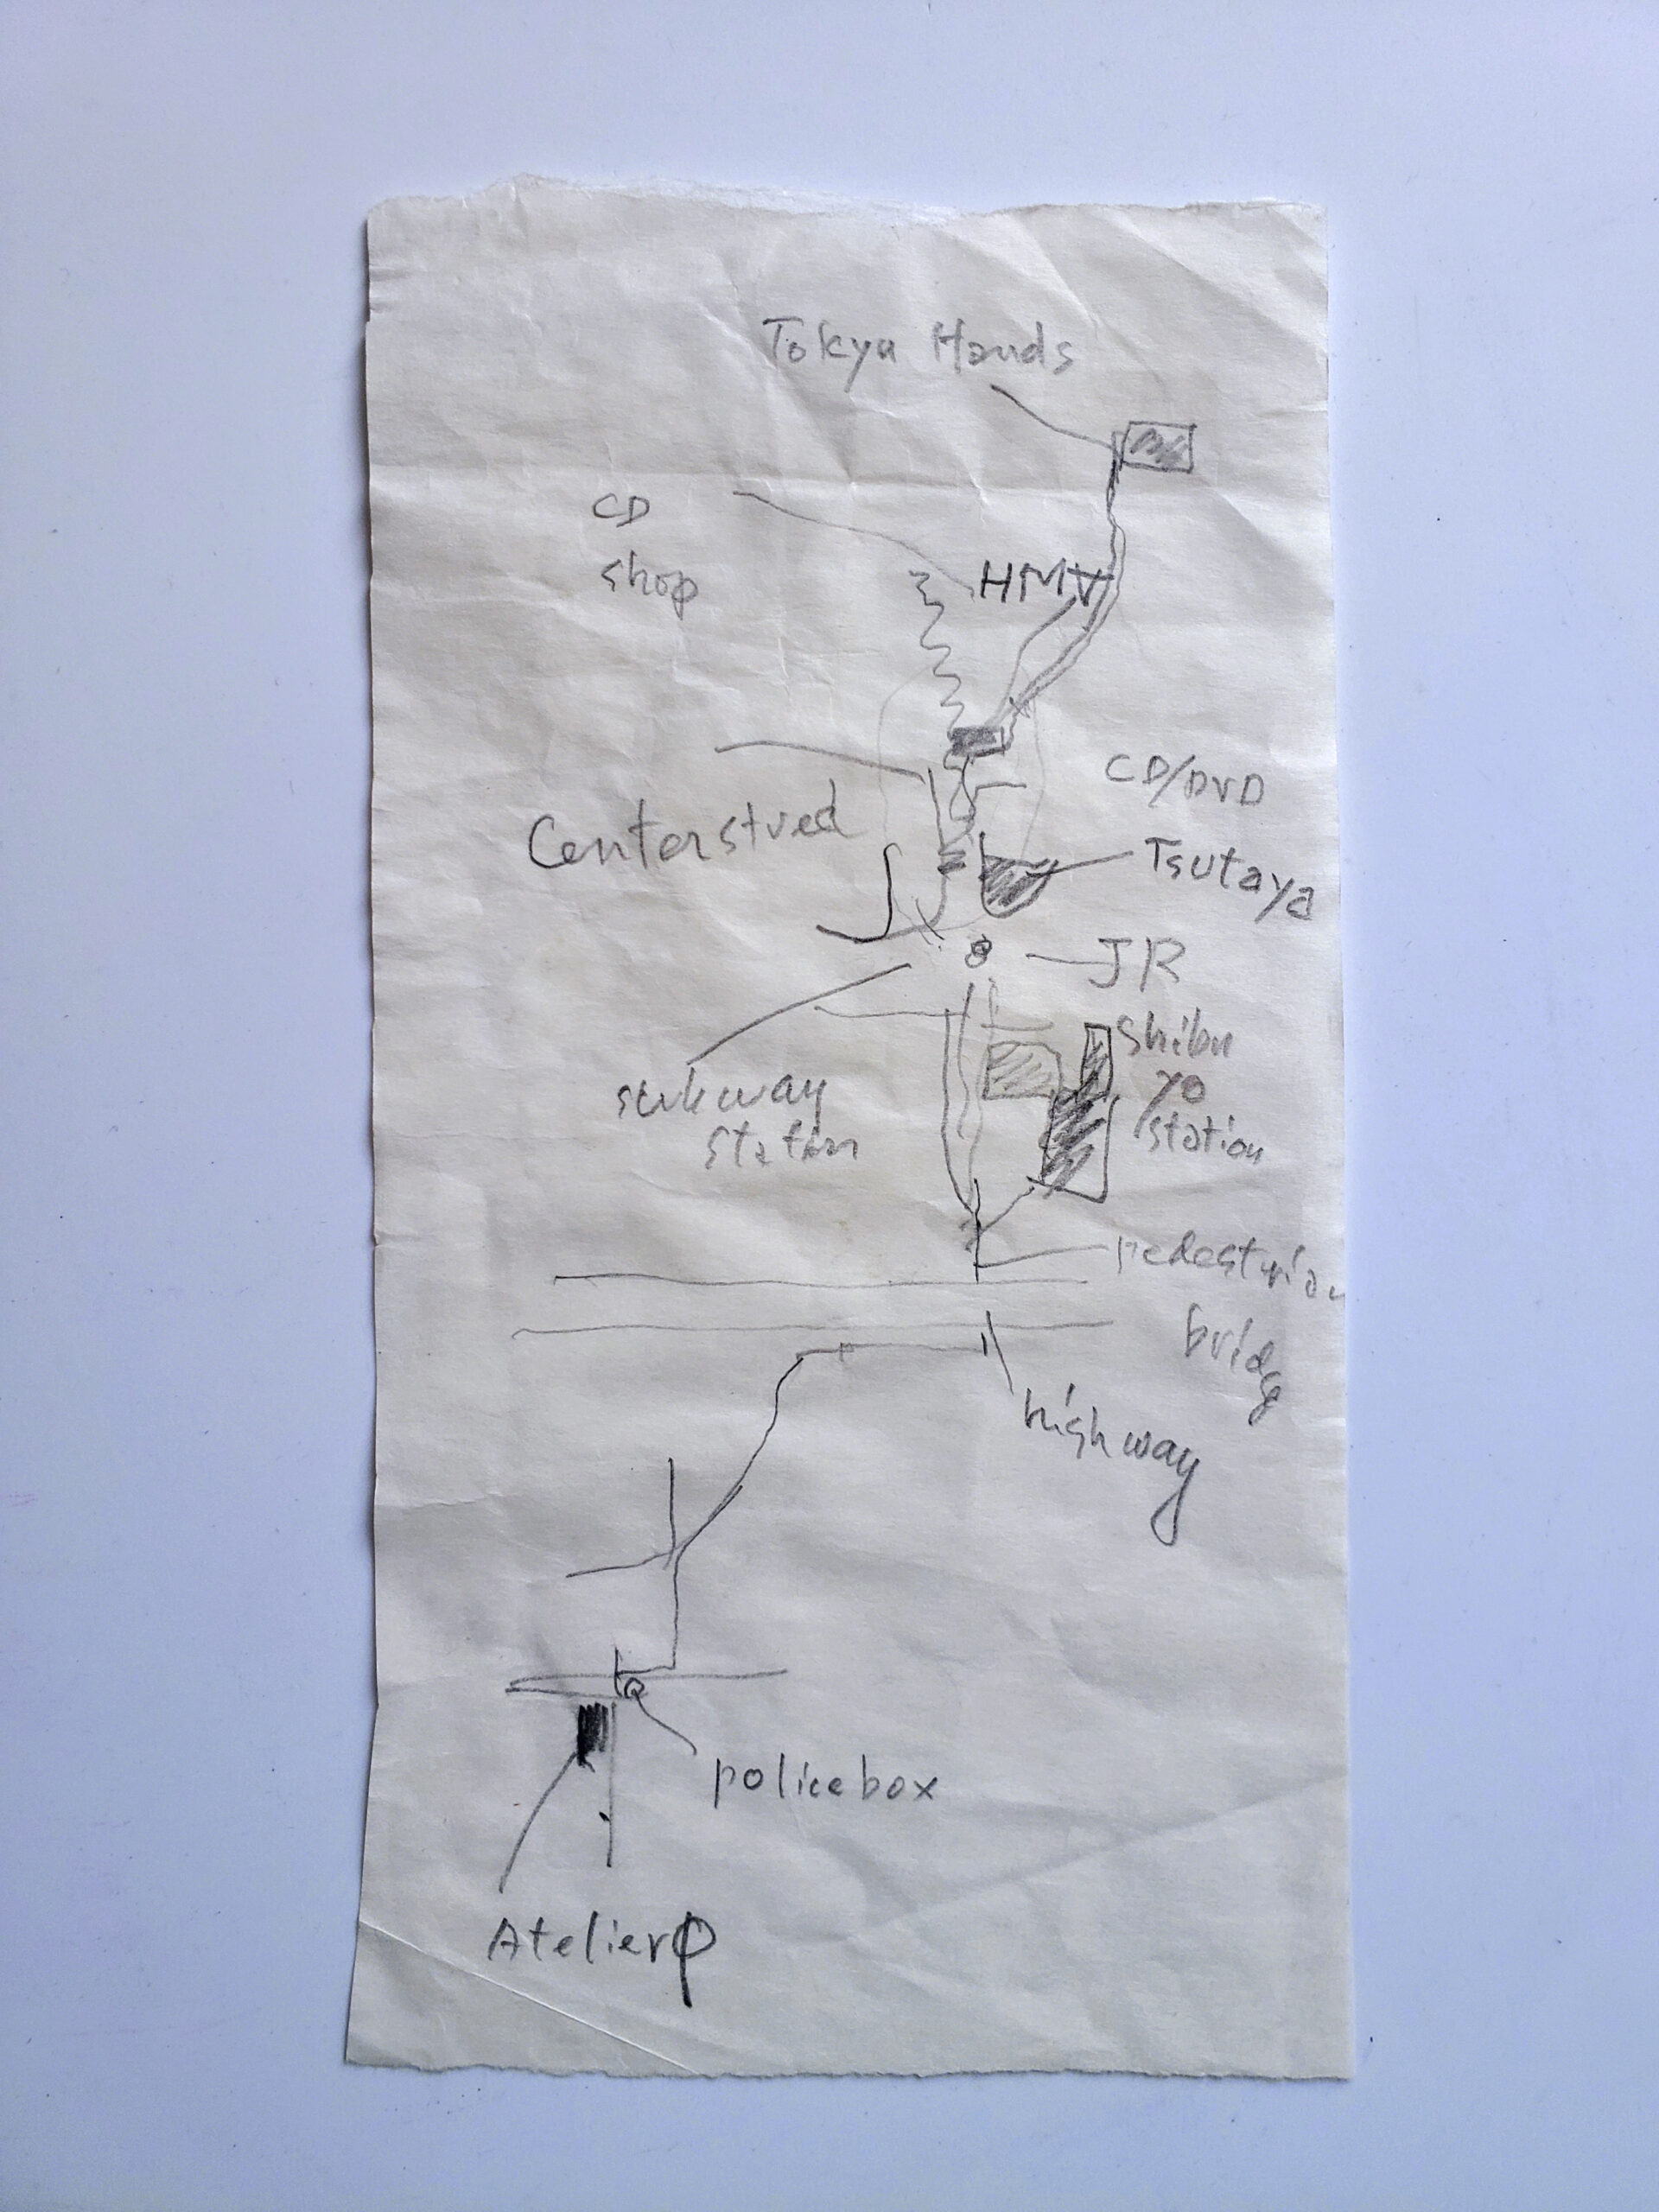 Tokyu Hands
CD
shop
HMV
CD/DVD
Tsutaya
Center stred
JR
Shibu
ya
station
subway
station
pedestrian
bridg
highway
policebox
Atelierφ